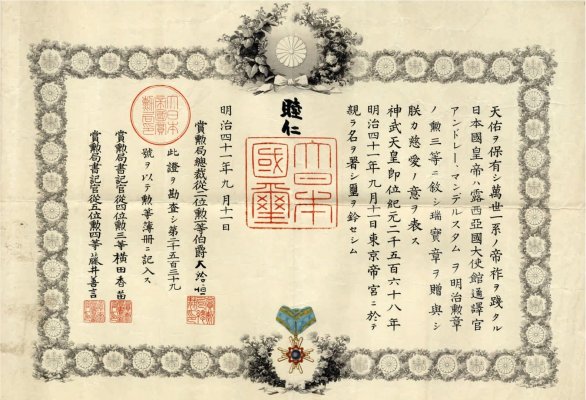 天佑ヲ保有シ萬世一系ノ帝祚ヲ踐タル
日本國皇帝ハ露西亞國大使館通譯官
アンドレー、マンデルスタム ヲ明治勲章
ノ勲三等ニ敘シ瑞寶章ヲ贈與シ
朕カ慈愛ノ意ヲ表ス
神武天皇即位紀元二千五百六十八年
明治四十一年九月十一日東京帝宮ニ於テ
親ラ名ヲ署シ璽ヲ鈐セシム
睦仁
大日本國璽
明治四十一年九月十一日
賞勲局總裁從二位勲一等伯爵
此證ヲ勘査シ第二千五百三十九
號ヲ以テ勲等簿冊ニ記入ス
賞勲局書記官從四位勲三等横田香苗
賞勲局書記官從五位勲四等藤井善言